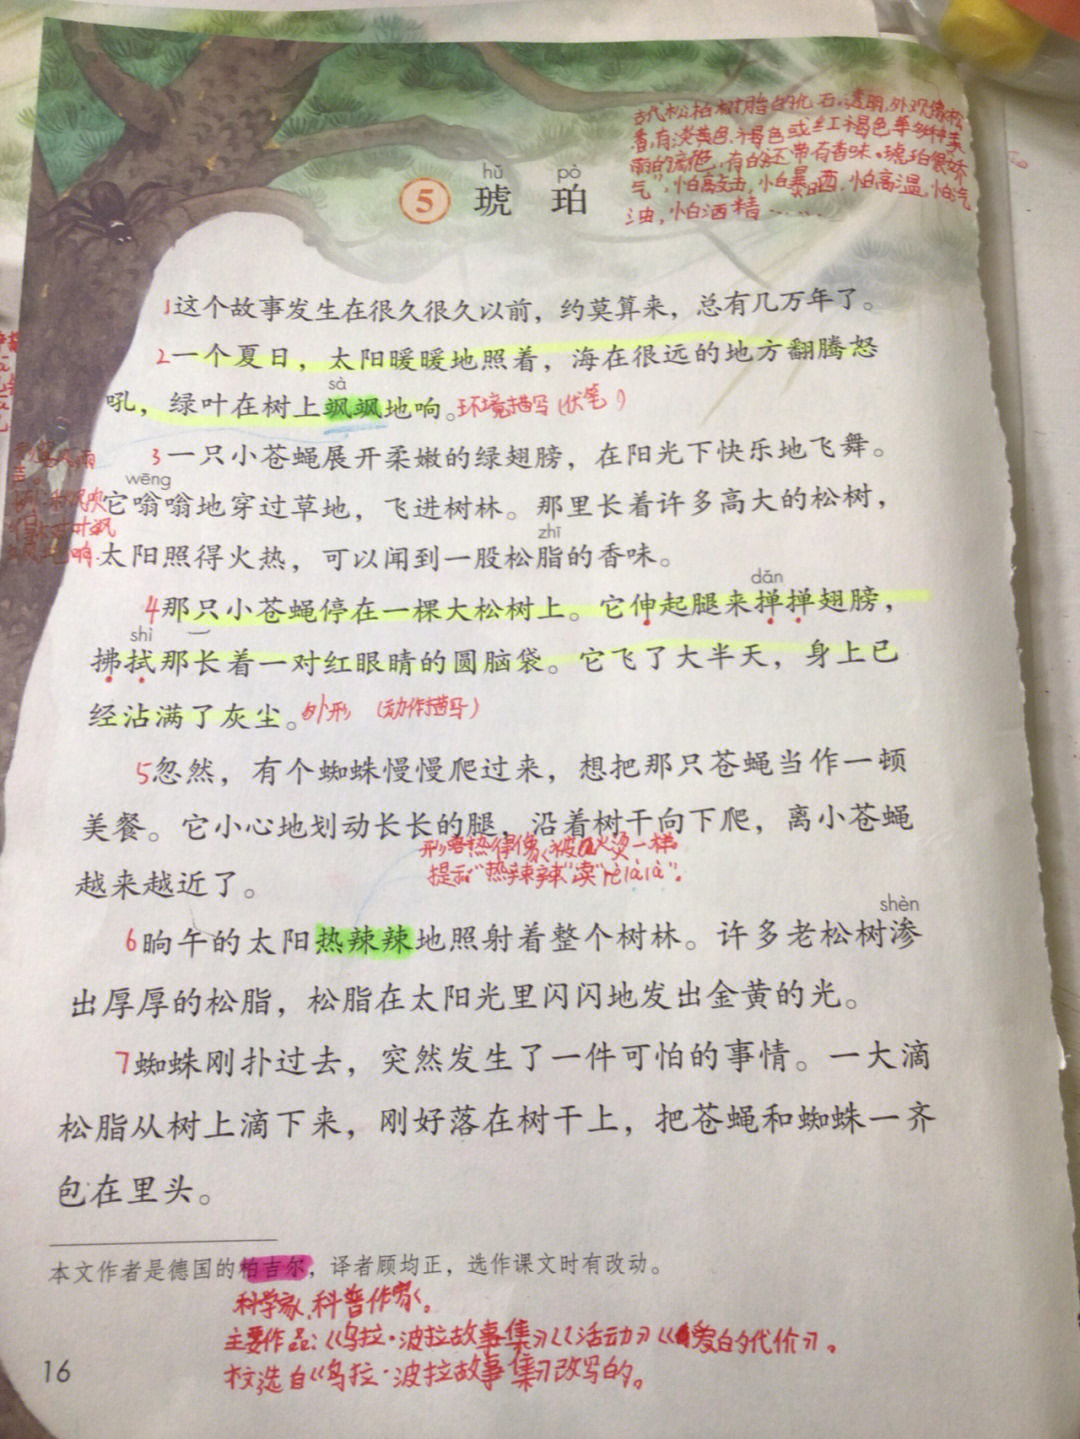 古代松柏树脂的化石。透明,外观像松
香,有淡黄色、褐色或红褐色等多种美
丽的颜色,有的还带有香味。琥珀很娇
气”,怕高敲击,怕暴晒,怕高温,怕汽
油,怕酒精……
hǔ pò
5 琥 珀
1这个故事发生在很久很久以前，约莫算来，总有几万年了。
2一个夏日，太阳暖暖地照着，海在很远的地方翻腾怒
sà
吼，绿叶在树上飒飒地响。环境描写(伏笔)
3一只小苍蝇展开柔嫩的绿翅膀，在阳光下快乐地飞舞。
wēng
它嗡嗡地穿过草地，飞进树林。那里长着许多高大的松树，
zhī
太阳照得火热，可以闻到一股松脂的香味。
dǎn
4那只小苍蝇停在一棵大松树上。它伸起腿来掸掸翅膀，
shì
拂拭那长着一对红眼睛的圆脑袋。它飞了大半天，身上已
经沾满了灰尘。外形 (动作描写)
5忽然，有个蜘蛛慢慢爬过来，想把那只苍蝇当作一顿
美餐。它小心地划动长长的腿，沿着树干向下爬，离小苍蝇
形容热得像被火烫一样
提示“热辣辣”读“rè là là”。
越来越近了。
shèn
6晌午的太阳热辣辣地照射着整个树林。许多老松树渗
出厚厚的松脂，松脂在太阳光里闪闪地发出金黄的光。
7蜘蛛刚扑过去，突然发生了一件可怕的事情。一大滴
松脂从树上滴下来，刚好落在树干上，把苍蝇和蜘蛛一齐
包在里头。
本文作者是德国的柏吉尔，译者顾均正，选作课文时有改动。
科学家、科普作家。
主要作品:《乌拉·波拉故事集》《活动》《爱的代价》。
本文选自《乌拉·波拉故事集》改写的。
16